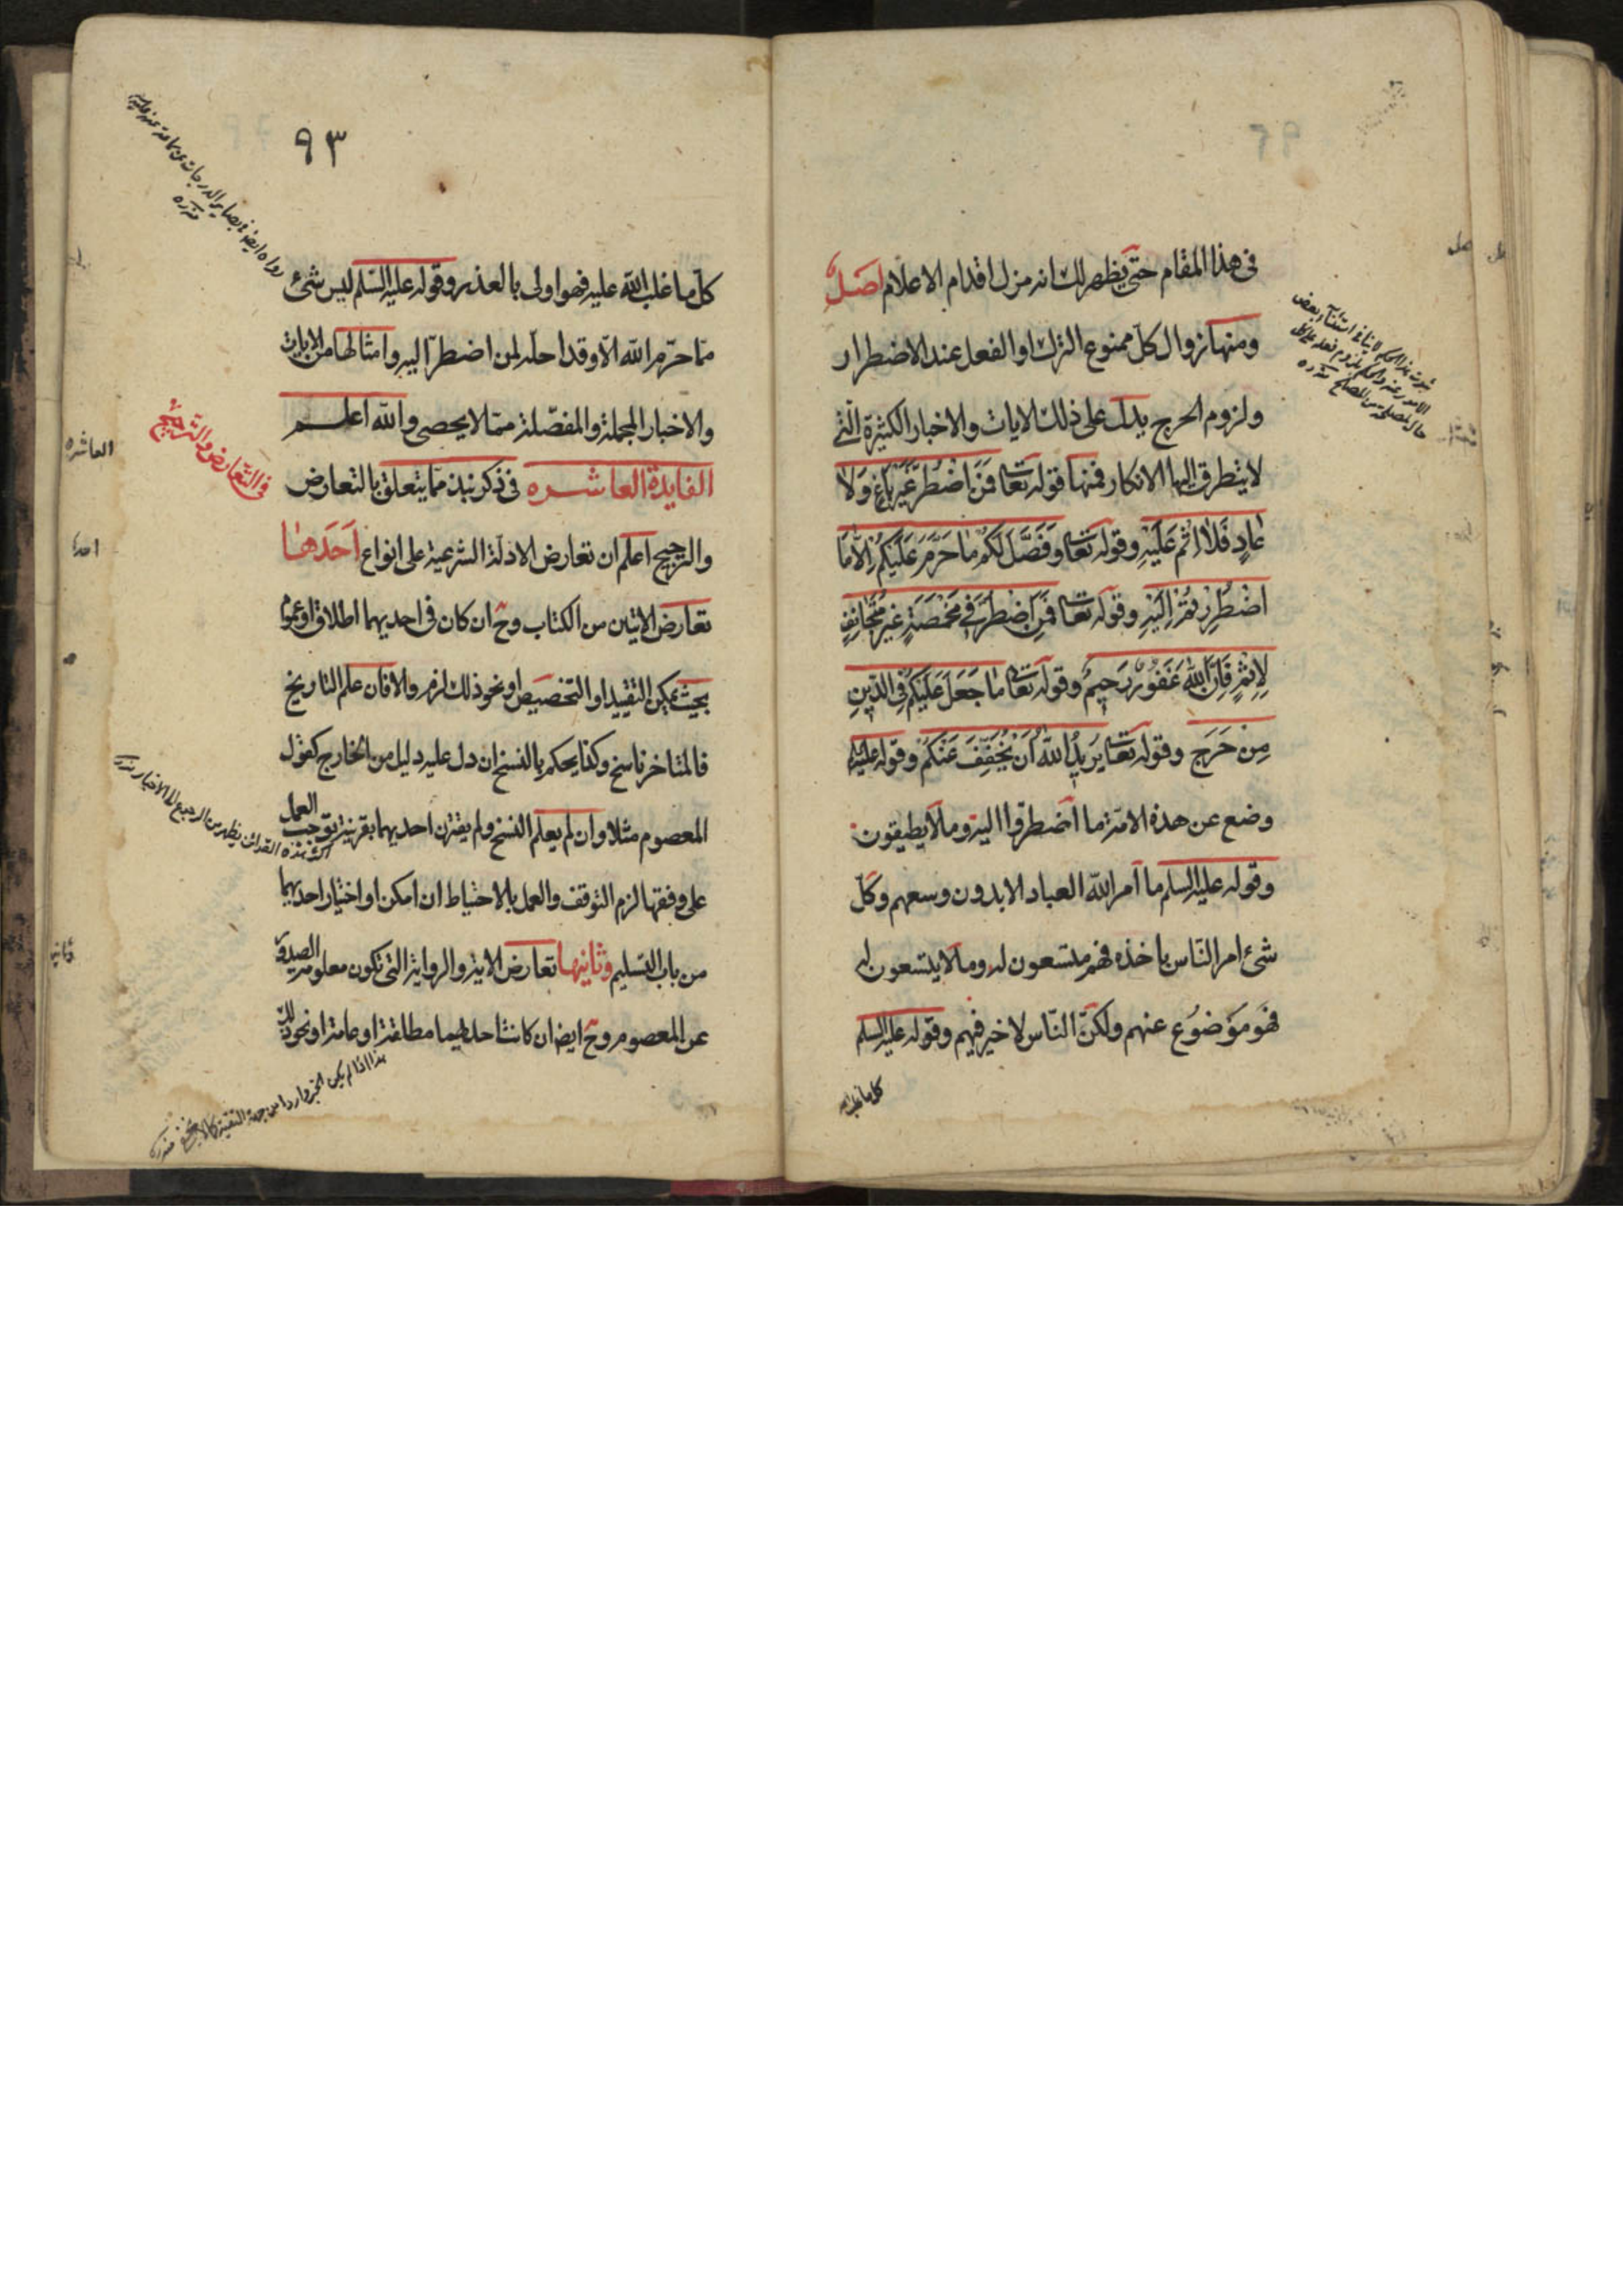 فى هذا المقام حتى يظهر لك انه مزل اقدام الاعلام اصل
ومنها زوال كل ممنوع الترك او الفعل عند الاضطرار
ولزوم الحرج يدل على ذلك الايات والاخبار الكثيرة التى
لا يتطرق اليها الانكار فمنها قوله تعا فَمَنِ اضْطُرَّ غَيْرَ بٰاغٍ وَلٰا
عٰادٍ فَلٰا اِثْمَ عَلَيْهِ وقوله تعا وَفَصَّلَ لَكُمْ مٰا حَرَّمَ عَلَيْكُمْ اِلّٰا مَا
اضْطُرِرْتُمْ اِلَيْهِ وقوله تعا فَمَنِ اضْطُرَّ فِي مَخْمَصَةٍ غَيْرَ مُتَجٰانِفٍ
لِاِثْمٍ فَاِنَّ اللّٰهَ غَفُورٌ رَحِيمٌ وقوله تعا مٰا جَعَلَ عَلَيْكُمْ فِي الدِّينِ
مِنْ حَرَجٍ وقوله تعا يُرِيدُ اللّٰهُ اَنْ يُخَفِّفَ عَنْكُمْ وقوله عليه
وضع عن هذة الامة ما اضطرّوا اليه وما لا يطيقون
وقوله عليه السلم ما امر الله العباد الا بدون وسعهم وكل
شئ امر الناس باخذه فهم متسعون له وما لا يتسعون له
فهو موضوع عنهم ولكنّ الناس لا خير فيهم وقوله عليه السلم
كل ما غلب الله
٩٣
رواه ايضا فى بصاير الدرجات عن
منه ره
كلّ ما غلب الله عليه فهو اولى بالعذر وقوله عليه السّلم ليس شئ
ممّا حرّم الله الّا وقد احلّه لمن اضطرّ اليه وامثالها من الايات
والاخبار المجملة والمفصّلة ممّا لا يحصى والله اعلم
فى التعارض والترجيح
العاشره
الفايدة العاشره فى ذكر نبذ ممّا يتعلق بالتعارض
والترجيح اعلم ان تعارض الادلّة الشرعية على انواع احدها
احدها
تعارض الايتين من الكتاب وح ان كان فى احديهما اطلاق او عموم
بحيث يمكن التقييد او التخصيص او نحو ذلك لزم والا فان علم التاريخ
فالمتاخر ناسخ وكذا يحكم بالنسخ ان دل عليه دليل من الخارج كقول
المعصوم مثلا وان لم يعلم النسخ ولم يقترن احديهما بقرينة توجب العمل
اكثر هذه القرائن يظهر من الرجوع الى الاخبار
على وفقها لزم التوقف والعمل بالاحتياط ان امكن او اختيار احديهما
من باب التسليم وثانيها تعارض الاية والرواية التى تكون معلومة الصدور
ثانيها
عن المعصوم وح ايضا ان كانت احديهما مطلقة او عامة او نحو ذلك
هذا اذا لم يكن الخبر واردا من جهة التقية كما لا يخفى منه ره